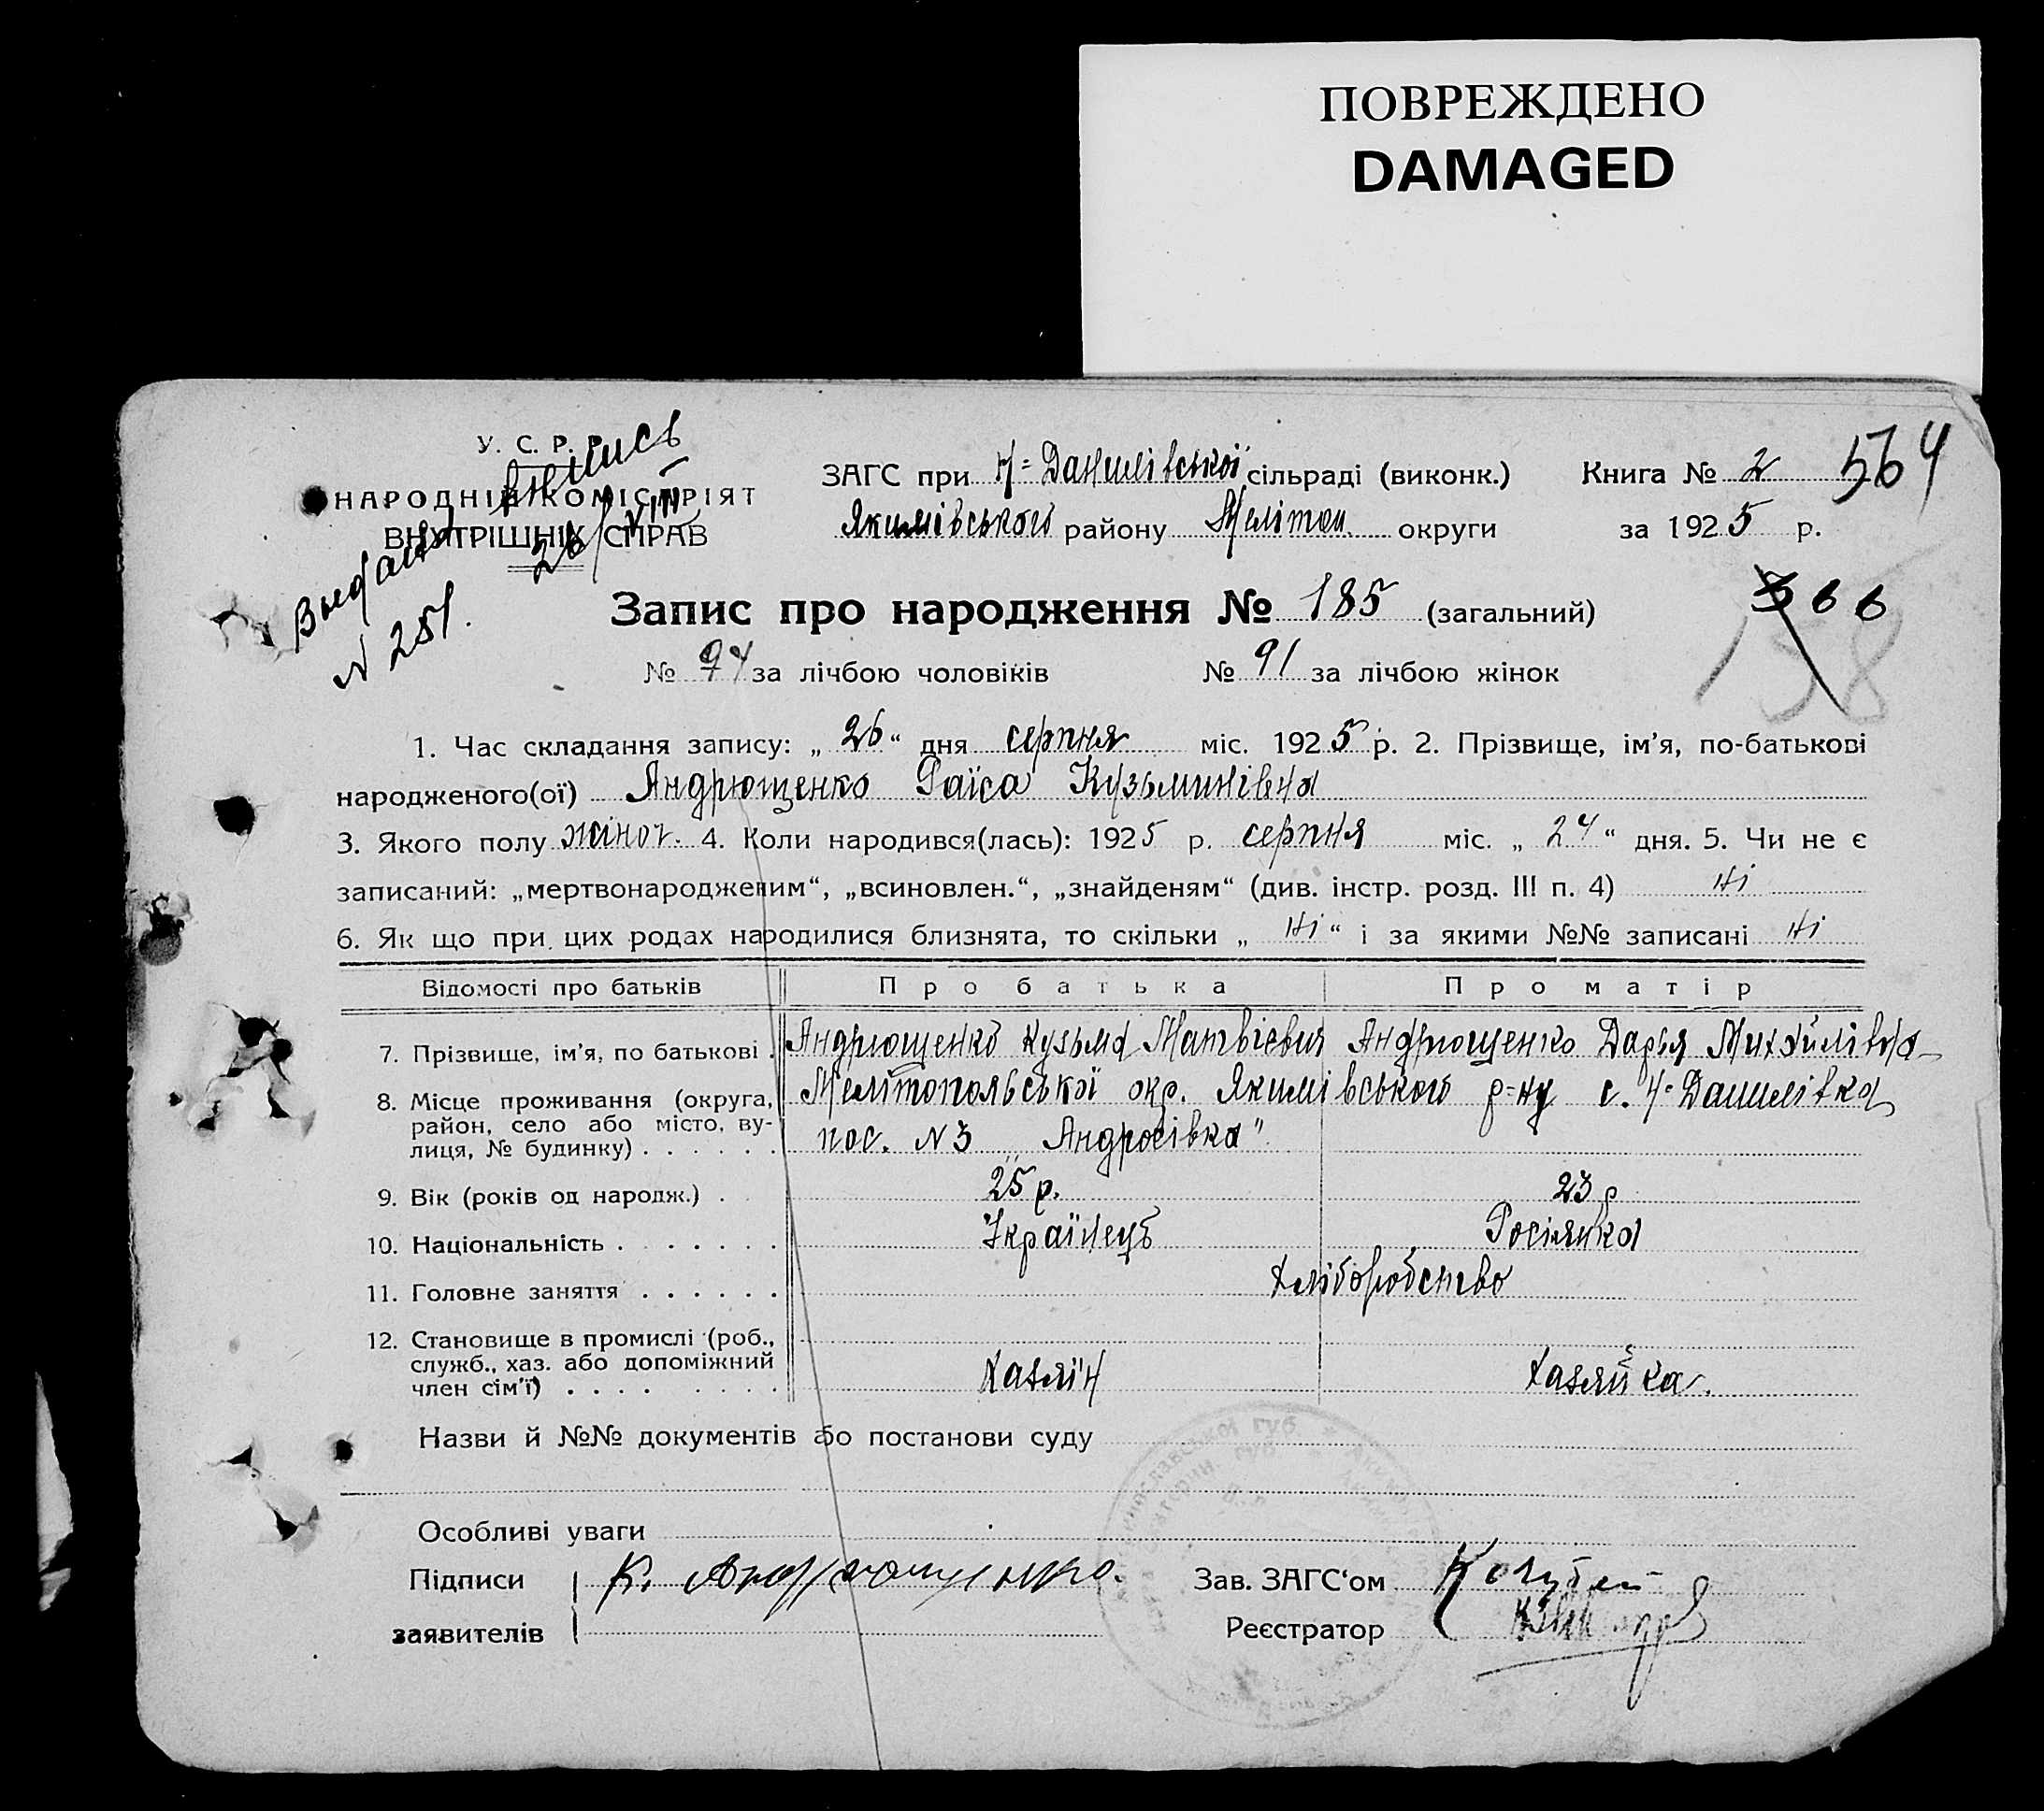 ПОВРЕЖДЕНО
DAMAGED
У. С. Р. Р.
НАРОДНІЙ КОМІСАРІЯТ
ВНУТРІШНІХ СПРАВ
Выдана
випись
26/VIII
N 251.
ЗАГС при Н-Данилівської сільраді (виконк.) Книга № 2 564
Якимівського району Мелітоп. округи за 1925 р.
Запис про народження № 185 (загальний) 366
138
№ 94 за лічбою чоловіків № 91 за лічбою жінок
1. Час складання запису: „26“ дня серпня міс. 1925 р. 2. Прізвище, ім'я, по-батькові
народженого(ої) Андрющенко Раїса Кузьминівна
3. Якого полу жіноч. 4. Коли народився(лась): 1925 р. серпня міс. „24“ дня. 5. Чи не є
записаний: „мертвонародженим“, „всиновлен.“, „знайденям“ (див. інстр. розд. III п. 4) ні
6. Як що при цих родах народилися близнята, то скільки „ні“ і за якими №№ записані ні
Відомості про батьків Про батька Про матір
7. Прізвище, ім'я, по батькові . Андрющенко Кузьма Матвієвич Андрющенко Дарья Михайлівна
8. Місце проживання (округа, район, село або місто, вулиця, № будинку) . . . . . . Мелітопольської окр. Якимівського р-ну с. Н-Данилівка
пос. N 3 „Андросівка"
9. Вік (років од народж.) . 25 р. 23 р
10. Національність . . . . . . . Українець Росіянка
11. Головне заняття . . . . . . Хліборобство
12. Становище в промислі (роб., служб., хаз. або допоміжний член сім'ї) . . . . . . . . Хазяїн Хазяйка.
Назви й №№ документів або постанови суду
Особливі уваги
Підписи К. Андрющенко. Зав. ЗАГС'ом
заявителів Реєстратор